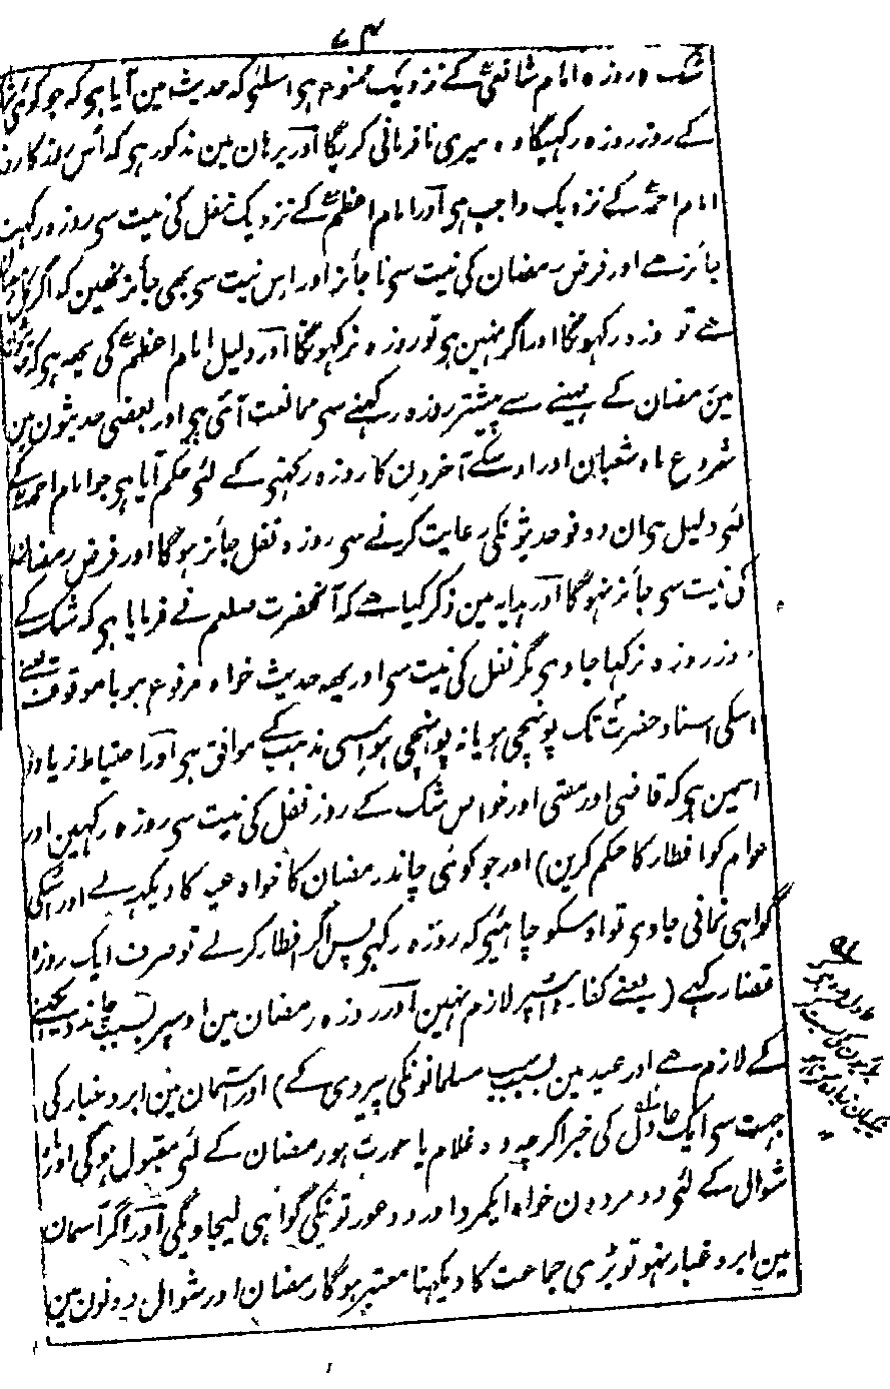 ۷۴
شک روزہ امام شافعیؒ کے نزدیک ممنوع ہی اسلئی کہ حدیث مین آیا ہی کہ جو کوئی شک
کے روز روزہ رکہیگا وہ میری نافرمانی کریگا اور برہان مین مذکور ہی کہ اُس روز کا روزہ
امام احمدؒ کے نزدیک واجب ہی اور امام اعظمؒ کے نزدیک نفل کی نیت سی روزہ رکہنا
جائز ہے اور فرض رمضان کی نیت سی ناجائز اور اس نیت سی بھی جائز نہین کہ اگر کل رمضان
ہے تو روزہ رکہونگا اور اگر نہین ہی تو روزہ نرکہونگا اور دلیل امام اعظمؒ کی یہہ ہی کہ حدیث
مین رمضان کے مہینے سے پیشتر روزہ رکہنے سی ممانعت آئی ہی اور بعضی حدیثون مین
شروع ماہ شعبان اور اوسکے آخر دن کا روزہ رکہنی کے لئی حکم آیا ہی جو امام احمدؒ کے
لئی دلیل ہی ان دونو حدیثونکی رعایت کرنے سی روزہ نفل جائز ہوگا اور فرض رمضان
کی نیت سی جائز نہوگا اور ہدایہ مین ذکر کیا ہے کہ آنحضرت صلعم نے فرمایا ہی کہ شک کے
روز روزہ نرکہا جاوی مگر نفل کی نیت سی اور یہہ حدیث خواہ مرفوع ہو یا موقوف یعنے
اسکی اسناد حضرتؐ تک پونہچی ہو یا نہ پونہچی ہو اِسی مذہب کے موافق ہی اور احتیاط زیادہ
اسمین ہی کہ قاضی اور مفتی اور خواص شک کے روز نفل کی نیت سی روزہ رکہین اور
عوام کو افطار کا حکم کرین) اور جو کوئی چاند رمضان کا خواہ عید کا دیکہہ لے اور اُسکی
گواہی نمانی جاوی تو اوسکو چاہئیے کہ روزہ رکہی پس اگر افطار کرلے تو صرف ایک روزہ
قضا رکہے (یعنے کفارہ اُسپر لازم نہین اور روزہ رمضان مین اوسپر بسبب چاند دیکہنے
کے لازم ہے اور عید مین بسبب مسلمانونکی پیروی کے) اور آسمان مین ابر و غبار کی
جہت سی ایک عادل کی خبر اگرچہ وہ غلام یا عورت ہو رمضان کے لئی مقبول ہوگی اور ماہ
شوال کے لئی دو مردون خواہ ایکمرد اور دو عورتونکی گواہی لیجاویگی اور اگر آسمان
مین ابر و غبار نہو تو بڑی جماعت کا دیکہنا معتبر ہوگا رمضان اور شوال دونون مین
عادل وہ ہی کہ